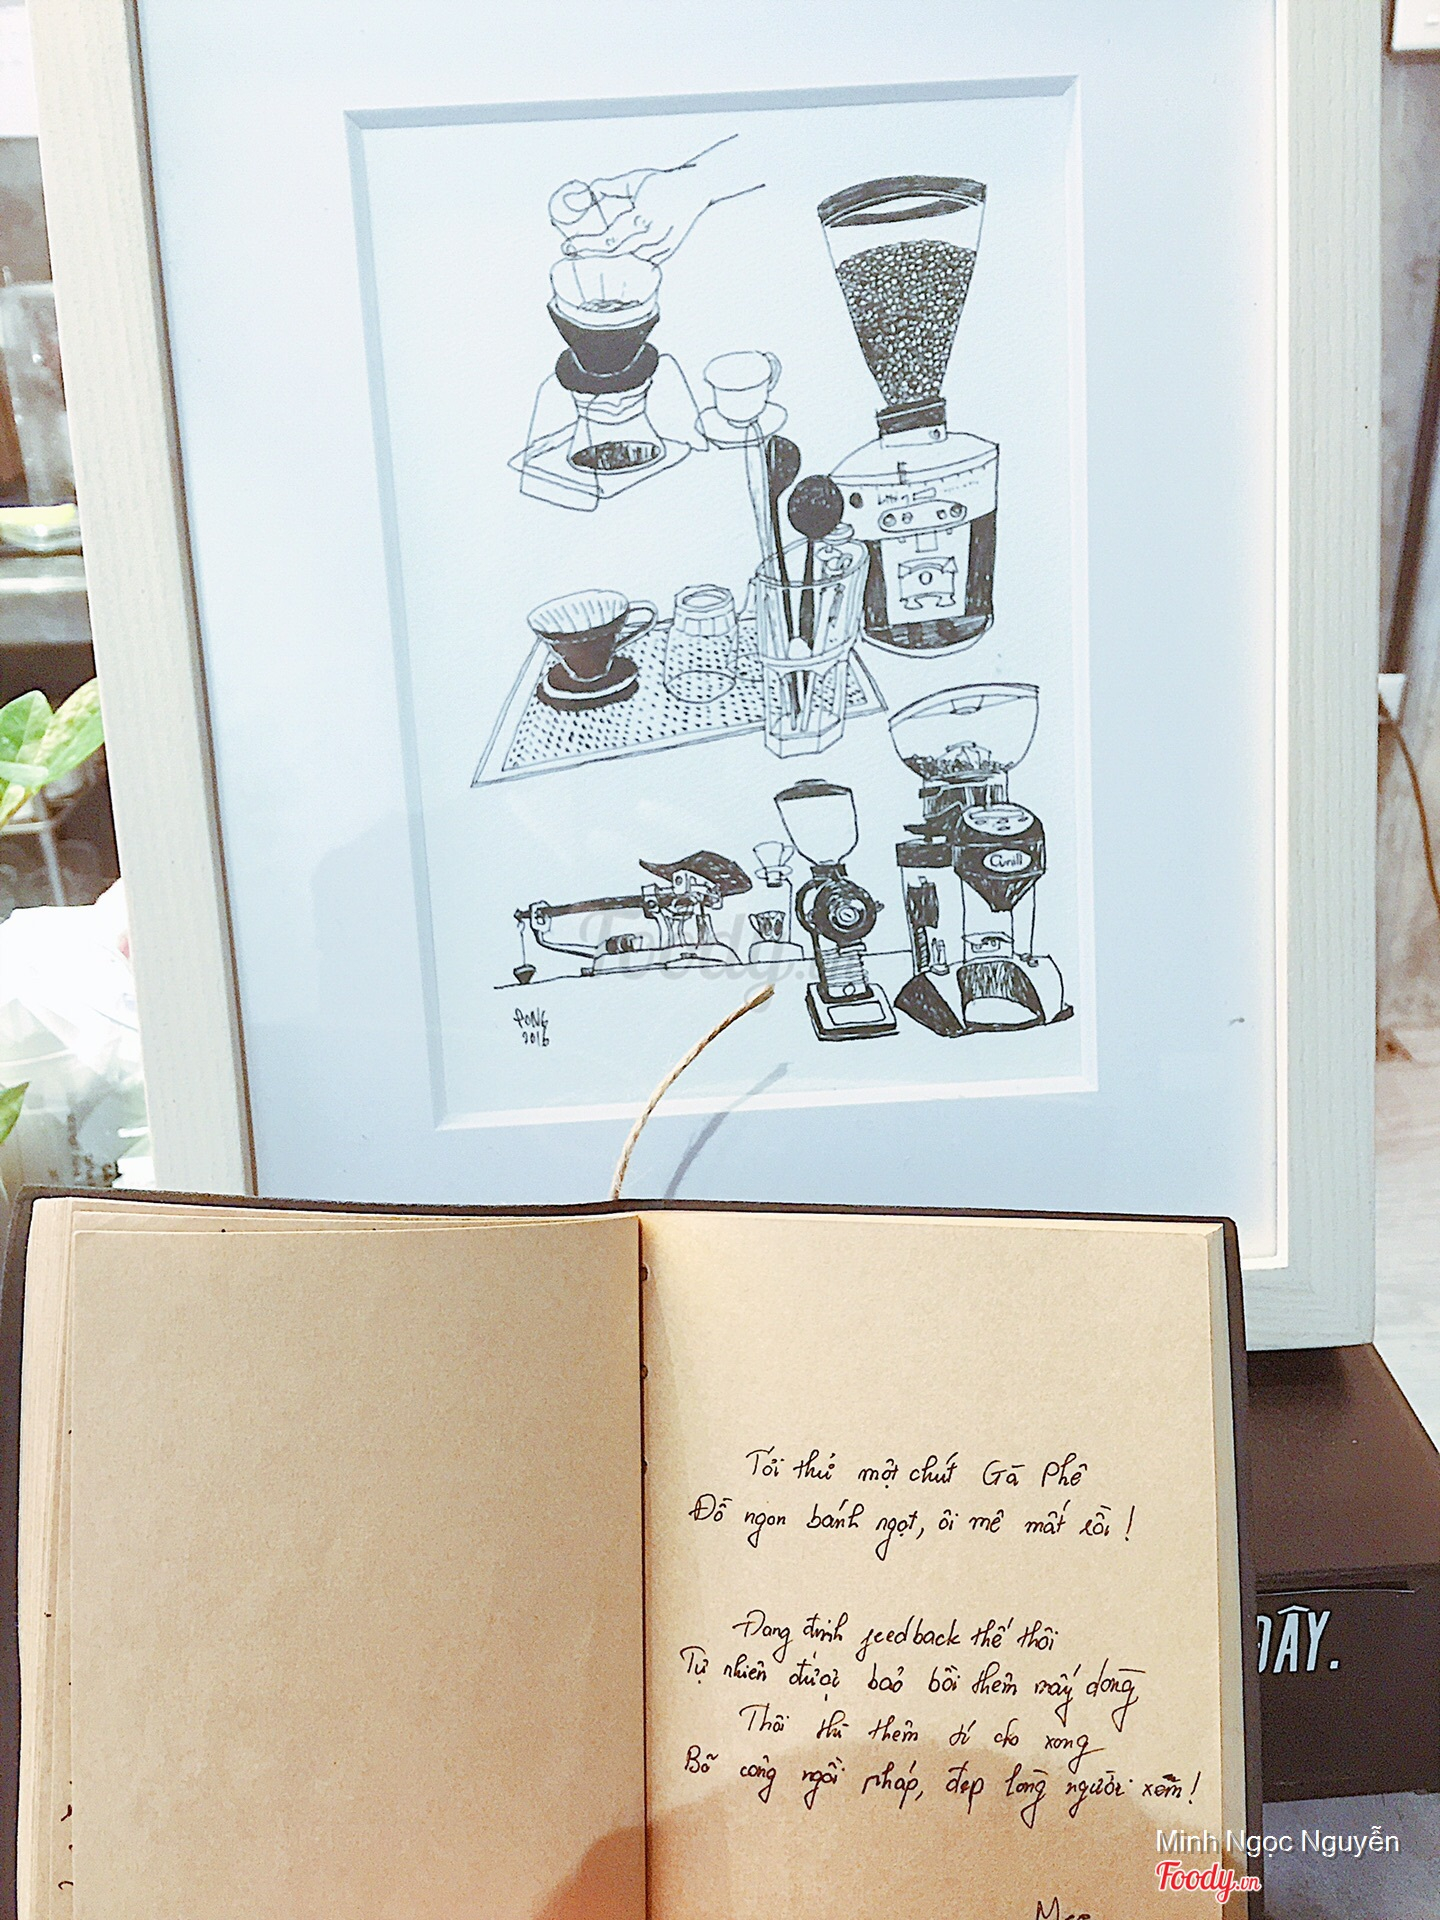 Cunill
PONG
2016
Foody.
Tôi thử một chút Gà Phê
Đồ ngon bánh ngọt, ôi mê mất rồi!
Đang định feedback thế thôi
Tự nhiên được bảo bồi thêm mấy dòng
Thôi thì thêm tí cho xong
Bõ công ngồi nháp, đẹp lòng người xem!
ĐÂY.
Minh Ngọc Nguyễn
Foody.vn